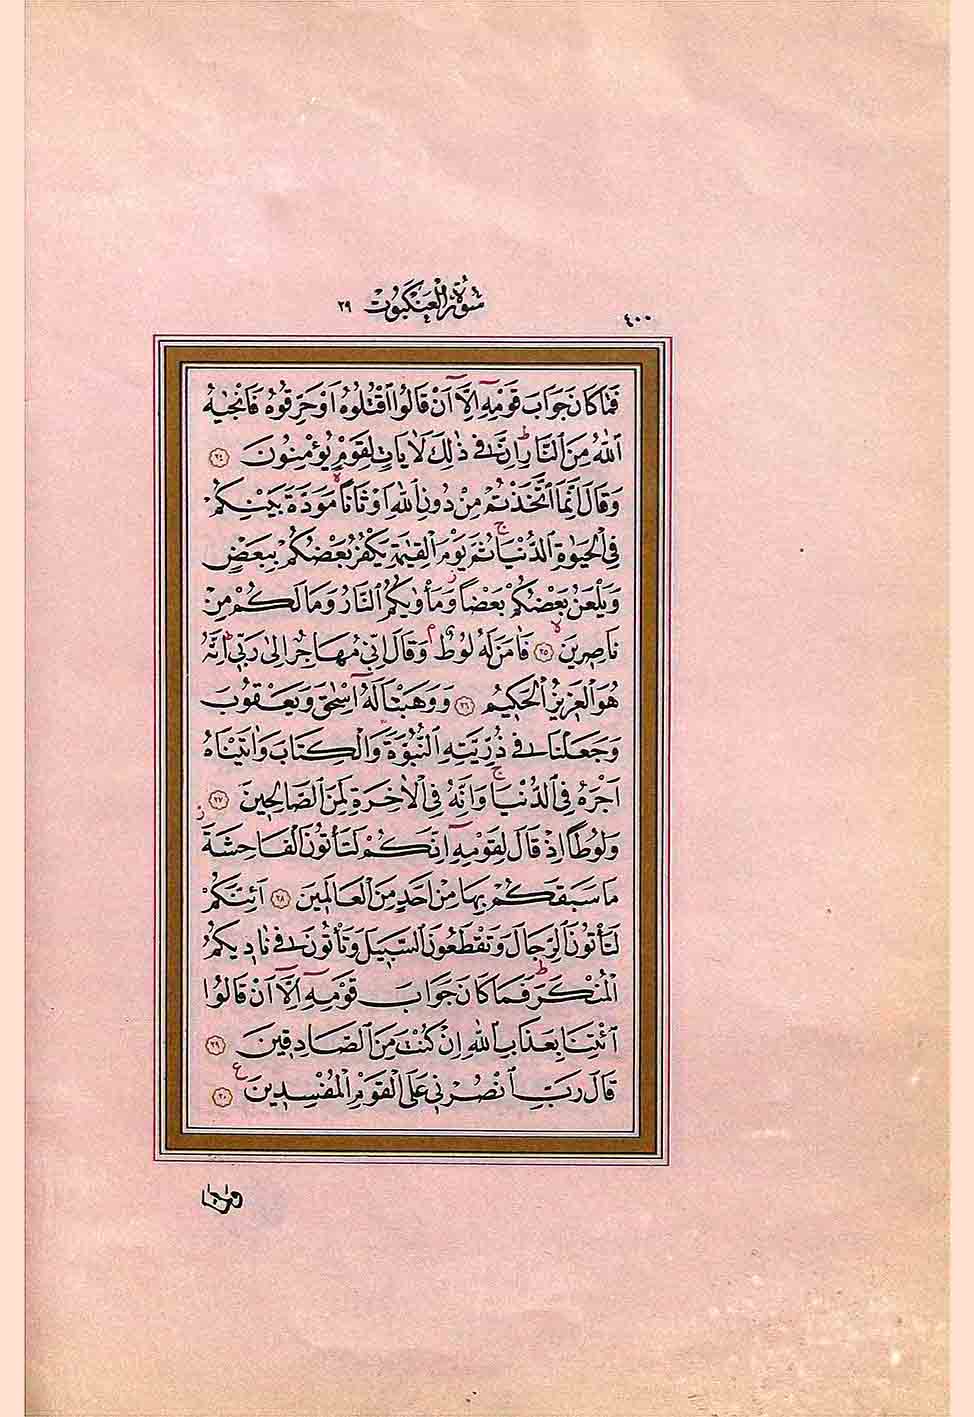 ٤٠٠ سُورَةُ الْعَنْكَبُوتِ ٢٩
فَمَا كَانَ جَوَابَ قَوْمِهِ اِلَّٓا اَنْ قَالُوا اقْتُلُوهُ اَوْ حَرِّقُوهُ فَاَنْجٰيهُ
اللّٰهُ مِنَ النَّارِۜ اِنَّ ف۪ي ذٰلِكَ لَاٰيَاتٍ لِقَوْمٍ يُؤْمِنُونَ ﴿٢٤﴾
وَقَالَ اِنَّمَا اتَّخَذْتُمْ مِنْ دُونِ اللّٰهِ اَوْثَانًاۙ مَوَدَّةَ بَيْنِكُمْ
فِي الْحَيٰوةِ الدُّنْيَاۚ ثُمَّ يَوْمَ الْقِيٰمَةِ يَكْفُرُ بَعْضُكُمْ بِبَعْضٍ
وَيَلْعَنُ بَعْضُكُمْ بَعْضًاۘ وَمَأْوٰيكُمُ النَّارُ وَمَا لَكُمْ مِنْ
نَاصِر۪ينَۙ ﴿٢٥﴾ فَاٰمَنَ لَهُ لُوطٌۢ وَقَالَ اِنّ۪ي مُهَاجِرٌ اِلٰى رَبّ۪يۜ اِنَّهُ
هُوَ الْعَز۪يزُ الْحَك۪يمُ ﴿٢٦﴾ وَوَهَبْنَا لَهُٓ اِسْحٰقَ وَيَعْقُوبَ
وَجَعَلْنَا ف۪ي ذُرِّيَّتِهِ النُّبُوَّةَ وَالْكِتَابَ وَاٰتَيْنَاهُ
اَجْرَهُ فِي الدُّنْيَاۚ وَاِنَّهُ فِي الْاٰخِرَةِ لَمِنَ الصَّالِح۪ينَ ﴿٢٧﴾
وَلُوطًا اِذْ قَالَ لِقَوْمِه۪ٓ اِنَّكُمْ لَتَأْتُونَ الْفَاحِشَةَۘ
مَا سَبَقَكُمْ بِهَا مِنْ اَحَدٍ مِنَ الْعَالَم۪ينَ ﴿٢٨﴾ اَئِنَّكُمْ
لَتَأْتُونَ الرِّجَالَ وَتَقْطَعُونَ السَّب۪يلَ وَتَأْتُونَ ف۪ي نَاد۪يكُمُ
الْمُنْكَرَۜ فَمَا كَانَ جَوَابَ قَوْمِه۪ٓ اِلَّٓا اَنْ قَالُوا
ائْتِنَا بِعَذَابِ اللّٰهِ اِنْ كُنْتَ مِنَ الصَّادِق۪ينَ ﴿٢٩﴾
قَالَ رَبِّ انْصُرْن۪ي عَلَى الْقَوْمِ الْمُفْسِد۪ينَ۟ ﴿٣٠﴾